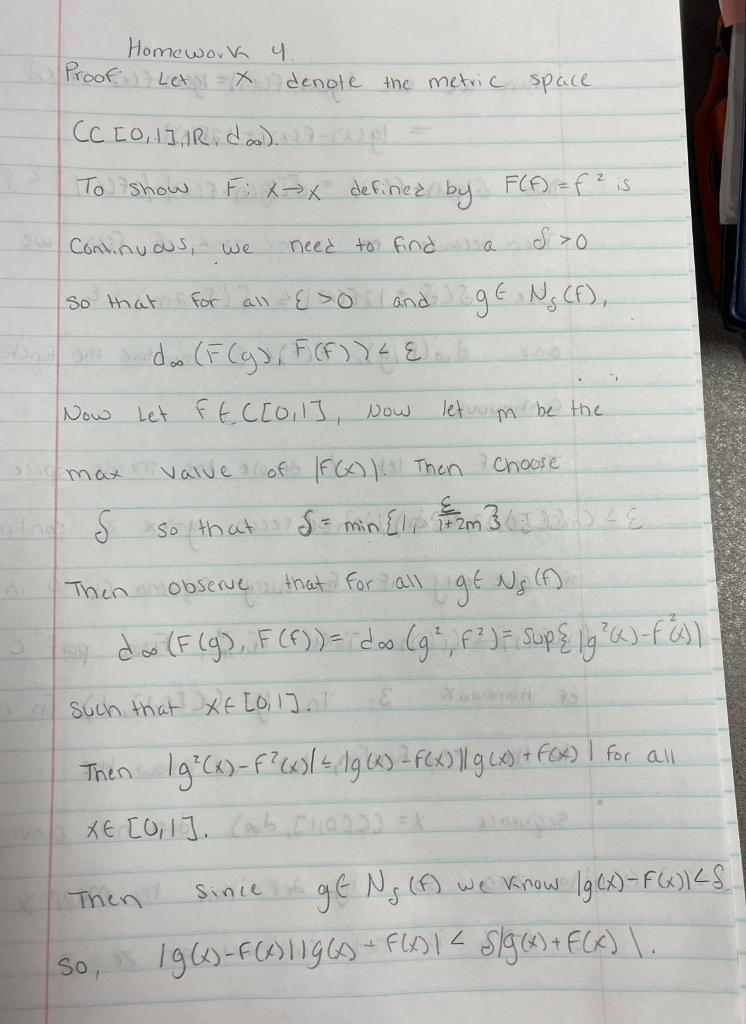 Homework 4.
Proof: Let X denote the metric space
(C[0,1],ℝ, d∞).
To show F: X→X defined by F(f) = f² is
Continuous, we need to find a δ>0
so that for all ε>0 and g∈ N_δ(f),
d∞(F(g), F(f)) < ε
Now Let f∈C[0,1], Now let m be the
max value of |f(x)|. Then choose
δ so that δ = min{1, ε/(1+2m)}
Then observe that for all g∈ N_δ(f)
d∞(F(g), F(f)) = d∞(g², f²) = sup{|g²(x)-f²(x)|
such that x∈[0,1].
Then |g²(x)-f²(x)| ≤ |g(x)-f(x)||g(x)+f(x)| for all
x∈[0,1].
Then since g∈ N_δ(f) we know |g(x)-f(x)|<δ
so, |g(x)-f(x)||g(x)+f(x)| < δ|g(x)+f(x)|.